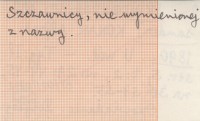 Szczawnicy, nie wymienionej
z nazwy.